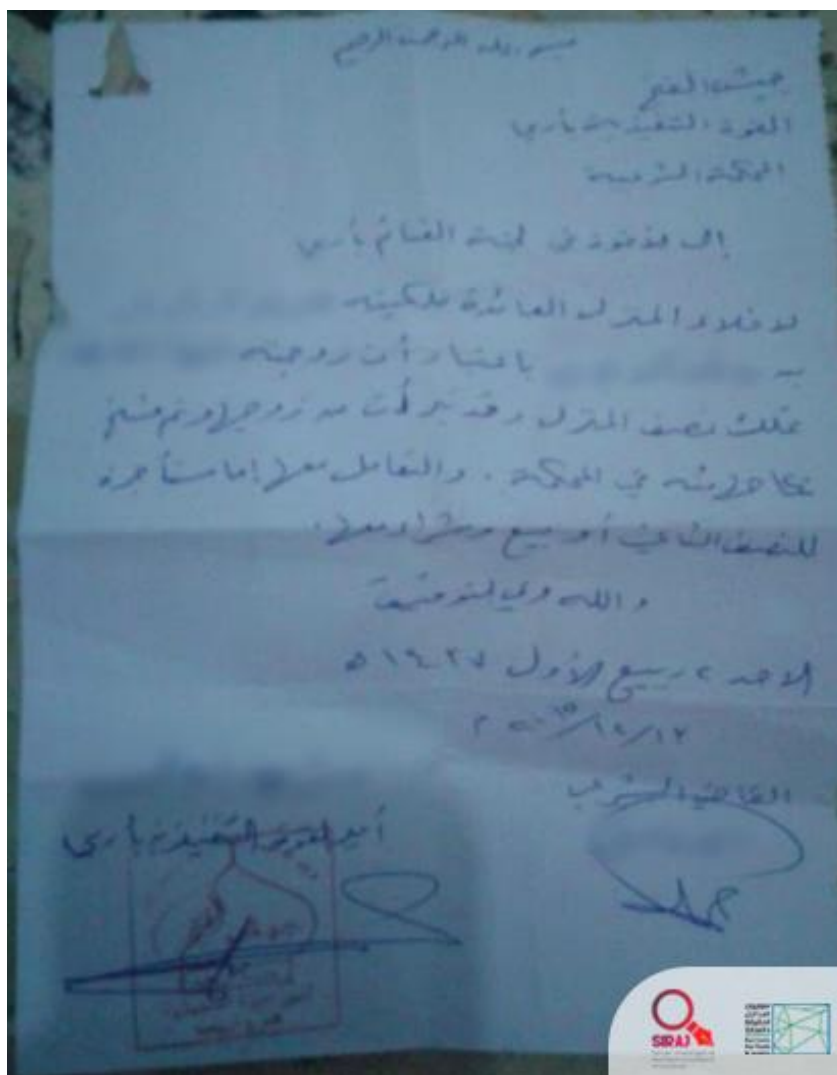 بسم الله الرحمن الرحيم
جيش الفتح
القوة التنفيذية بأريحا
المحكمة الشرعية
إلى الإخوة في لجنة الغنائم بأريحا
لإخلاء المنزل العائدة ملكيته
باعتبار أن زوجته
تملك نصف المنزل وقد تبرأت من زوجها وتم فسخ
نكاحها منه في المحكمة . والتعامل معها إما مستأجرة
للنصف الثاني أو بيع وشراء معها .
والله ولي التوفيق
الأحد ٢ ربيع الأول ١٤٣٧ ه
القاضي الشرعي
أمير القوة التنفيذية بأريحا
SIRAJ